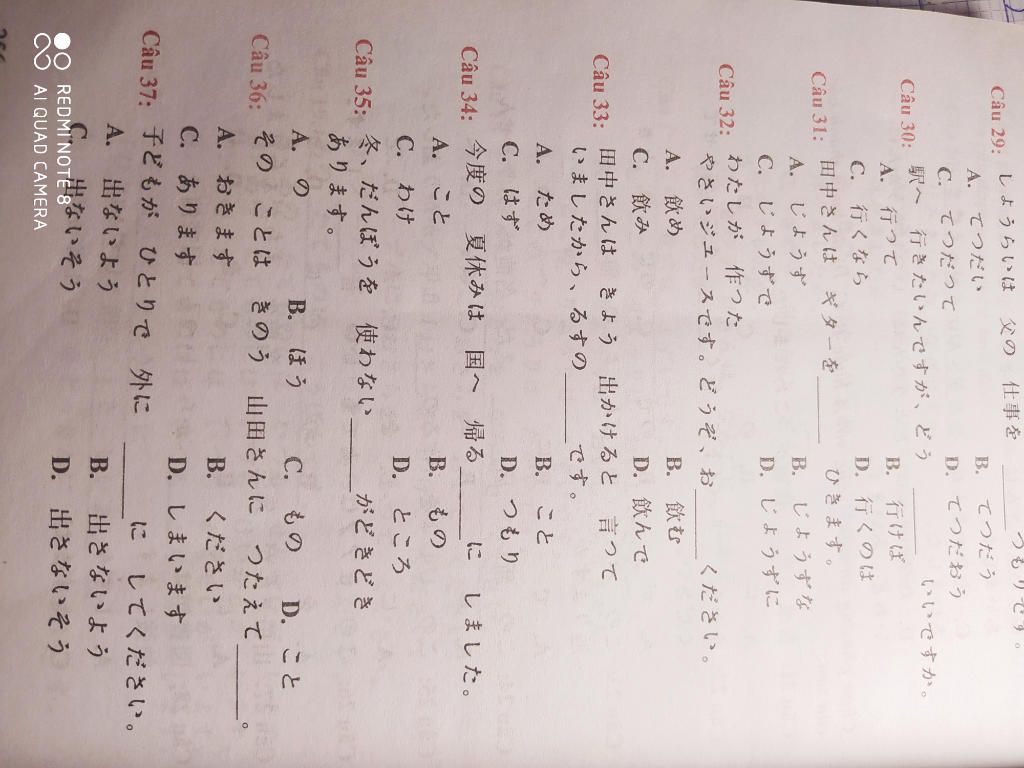 Câu 29: しょうらいは 父の 仕事を ______ つもりです。
A. てつだい B. てつだう
C. てつだって D. てつだおう
Câu 30: 駅へ 行きたいんですが、どう ______ いいですか。
A. 行って B. 行けば
C. 行くなら D. 行くのは
Câu 31: 田中さんは ギターを ______ ひきます。
A. じょうず B. じょうずな
C. じょうずで D. じょうずに
Câu 32: わたしが 作った
やさいジュースです。どうぞ、お ______ ください。
A. 飲め B. 飲む
C. 飲み D. 飲んで
Câu 33: 田中さんは きょう 出かけると 言って
いましたから、るすの ______ です。
A. ため B. こと
C. はず D. つもり
Câu 34: 今度の 夏休みは 国へ 帰る ______ に しました。
A. こと B. もの
C. わけ D. ところ
Câu 35: 冬、だんぼうを 使わない ______ がどきどき
あります。
A. の B. ほう C. もの D. こと
Câu 36: その ことは きのう 山田さんに つたえて ______ 。
A. おきます B. ください
C. あります D. しまいます
Câu 37: 子どもが ひとりで 外に ______ に してください。
A. 出ないよう B. 出さないよう
C. 出ないそう D. 出さないそう
REDMI NOTE 8
AI QUAD CAMERA